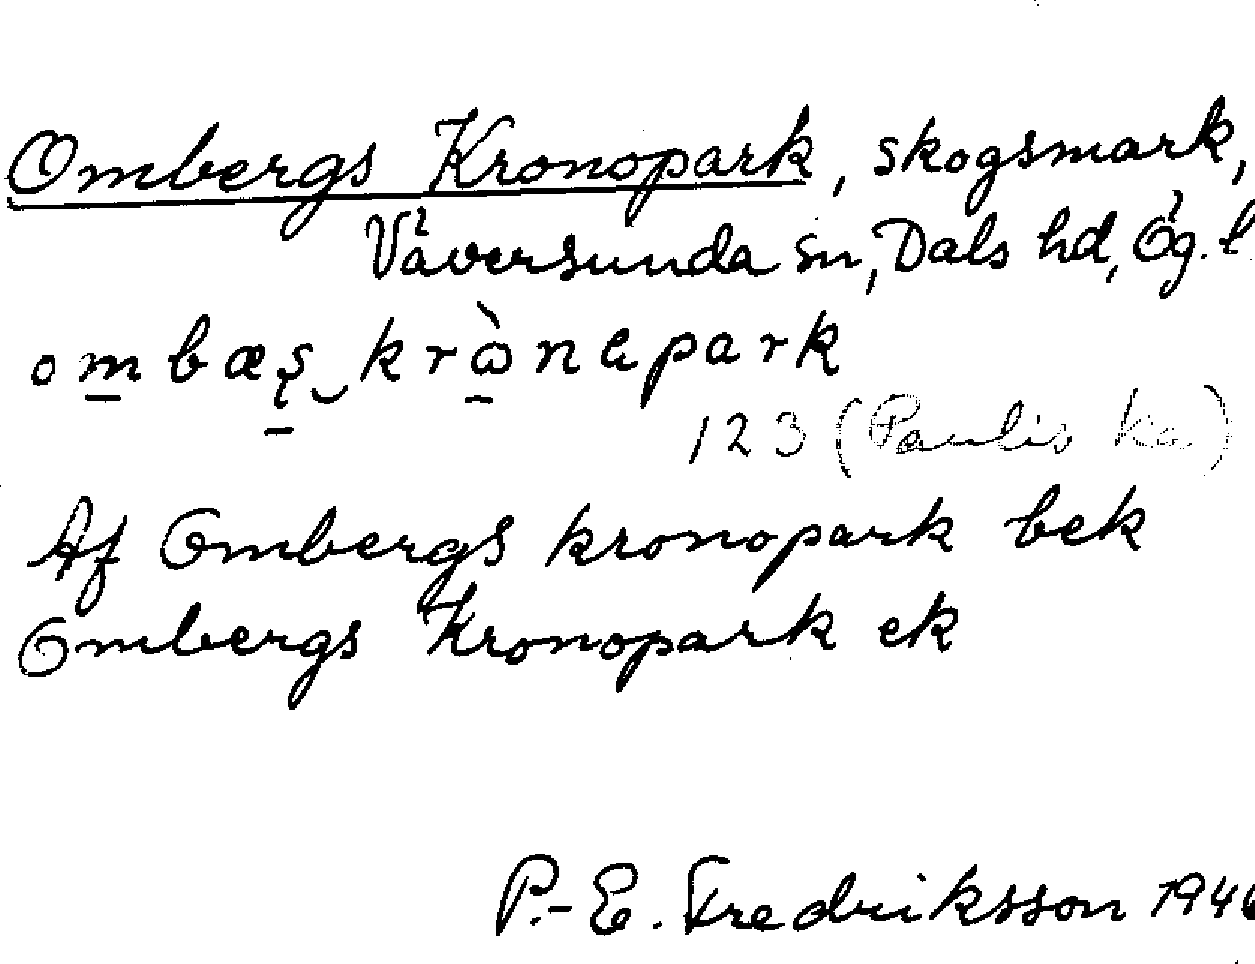 Ombergs Kronopark, skogsmark,
Väversunda sn, Dals hd, Ög. l
ombæʂ‿krὼnɐpark
123 (Paulis ka)
Af Ombergs kronopark bek
Ombergs Kronopark ek
P.-E. Fredriksson 1946